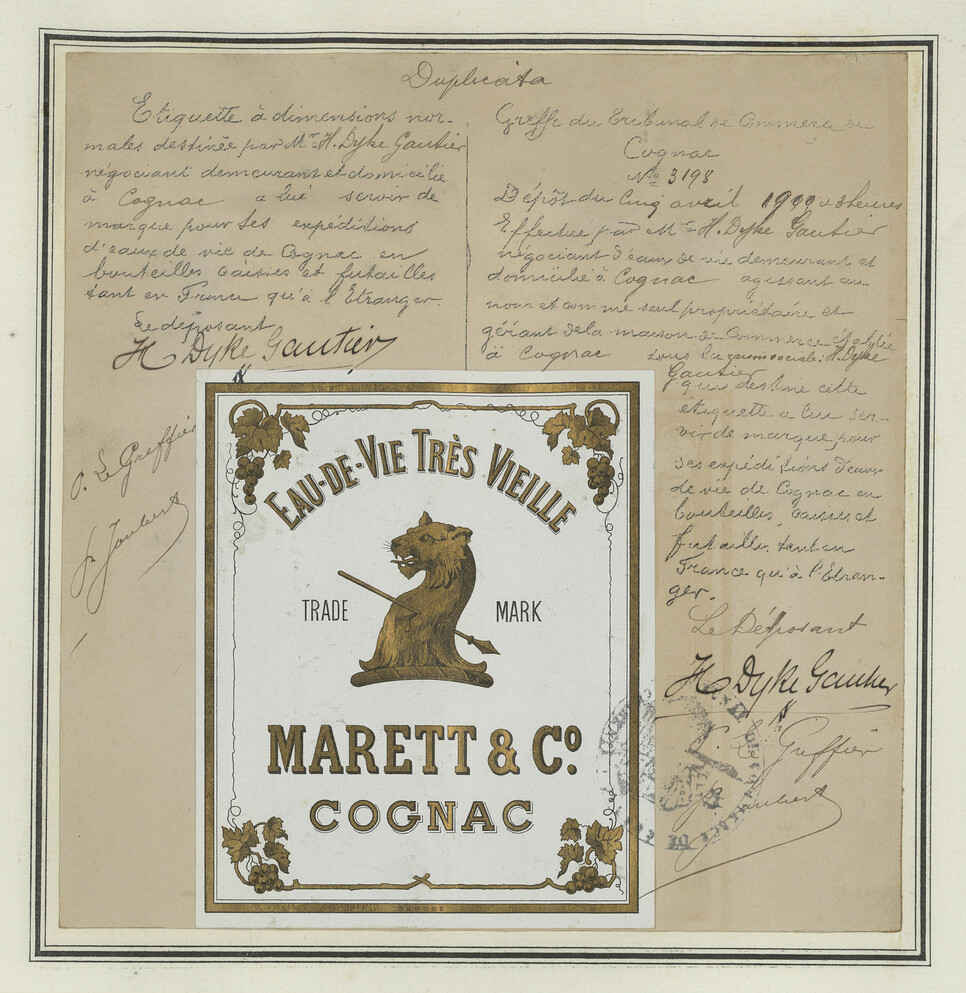 Duplicata
Etiquette à dimensions nor-
males destinée par Mr H. Dyke Gautier
négociant demeurant et domicilié
à Cognac a lui servir de
marque pour ses expéditions
d'eaux de vie de Cognac en
bouteilles caisses et futailles
tant en France qu'à l'Etranger.
Le déposant
H Dyke Gautier
P. Le Greffier
Joubert
Greffe du Tribunal de Commerce de
Cognac
No 3198
Dépôt du Cinq avril 1900 à 3 heures
Effectué par Mr H. Dyke Gautier
négociant d'eaux de vie demeurant et
domicilié à Cognac agissant au
nom et comme seul propriétaire et
gérant de la maison de Commerce établie
à Cognac sous la raison sociale: H. Dyke
Gautier
qui destine cette
étiquette a lui ser-
vir de marque pour
ses expéditions d'eaux
de vie de Cognac en
bouteilles, caisses et
futailles tant en
France qu'à l'Etran-
ger.
Le Déposant
H Dyke Gautier
P. Le Greffier
Joubert
EAU-DE-VIE TRÈS VIEILLE
TRADE MARK
MARETT & Co.
COGNAC